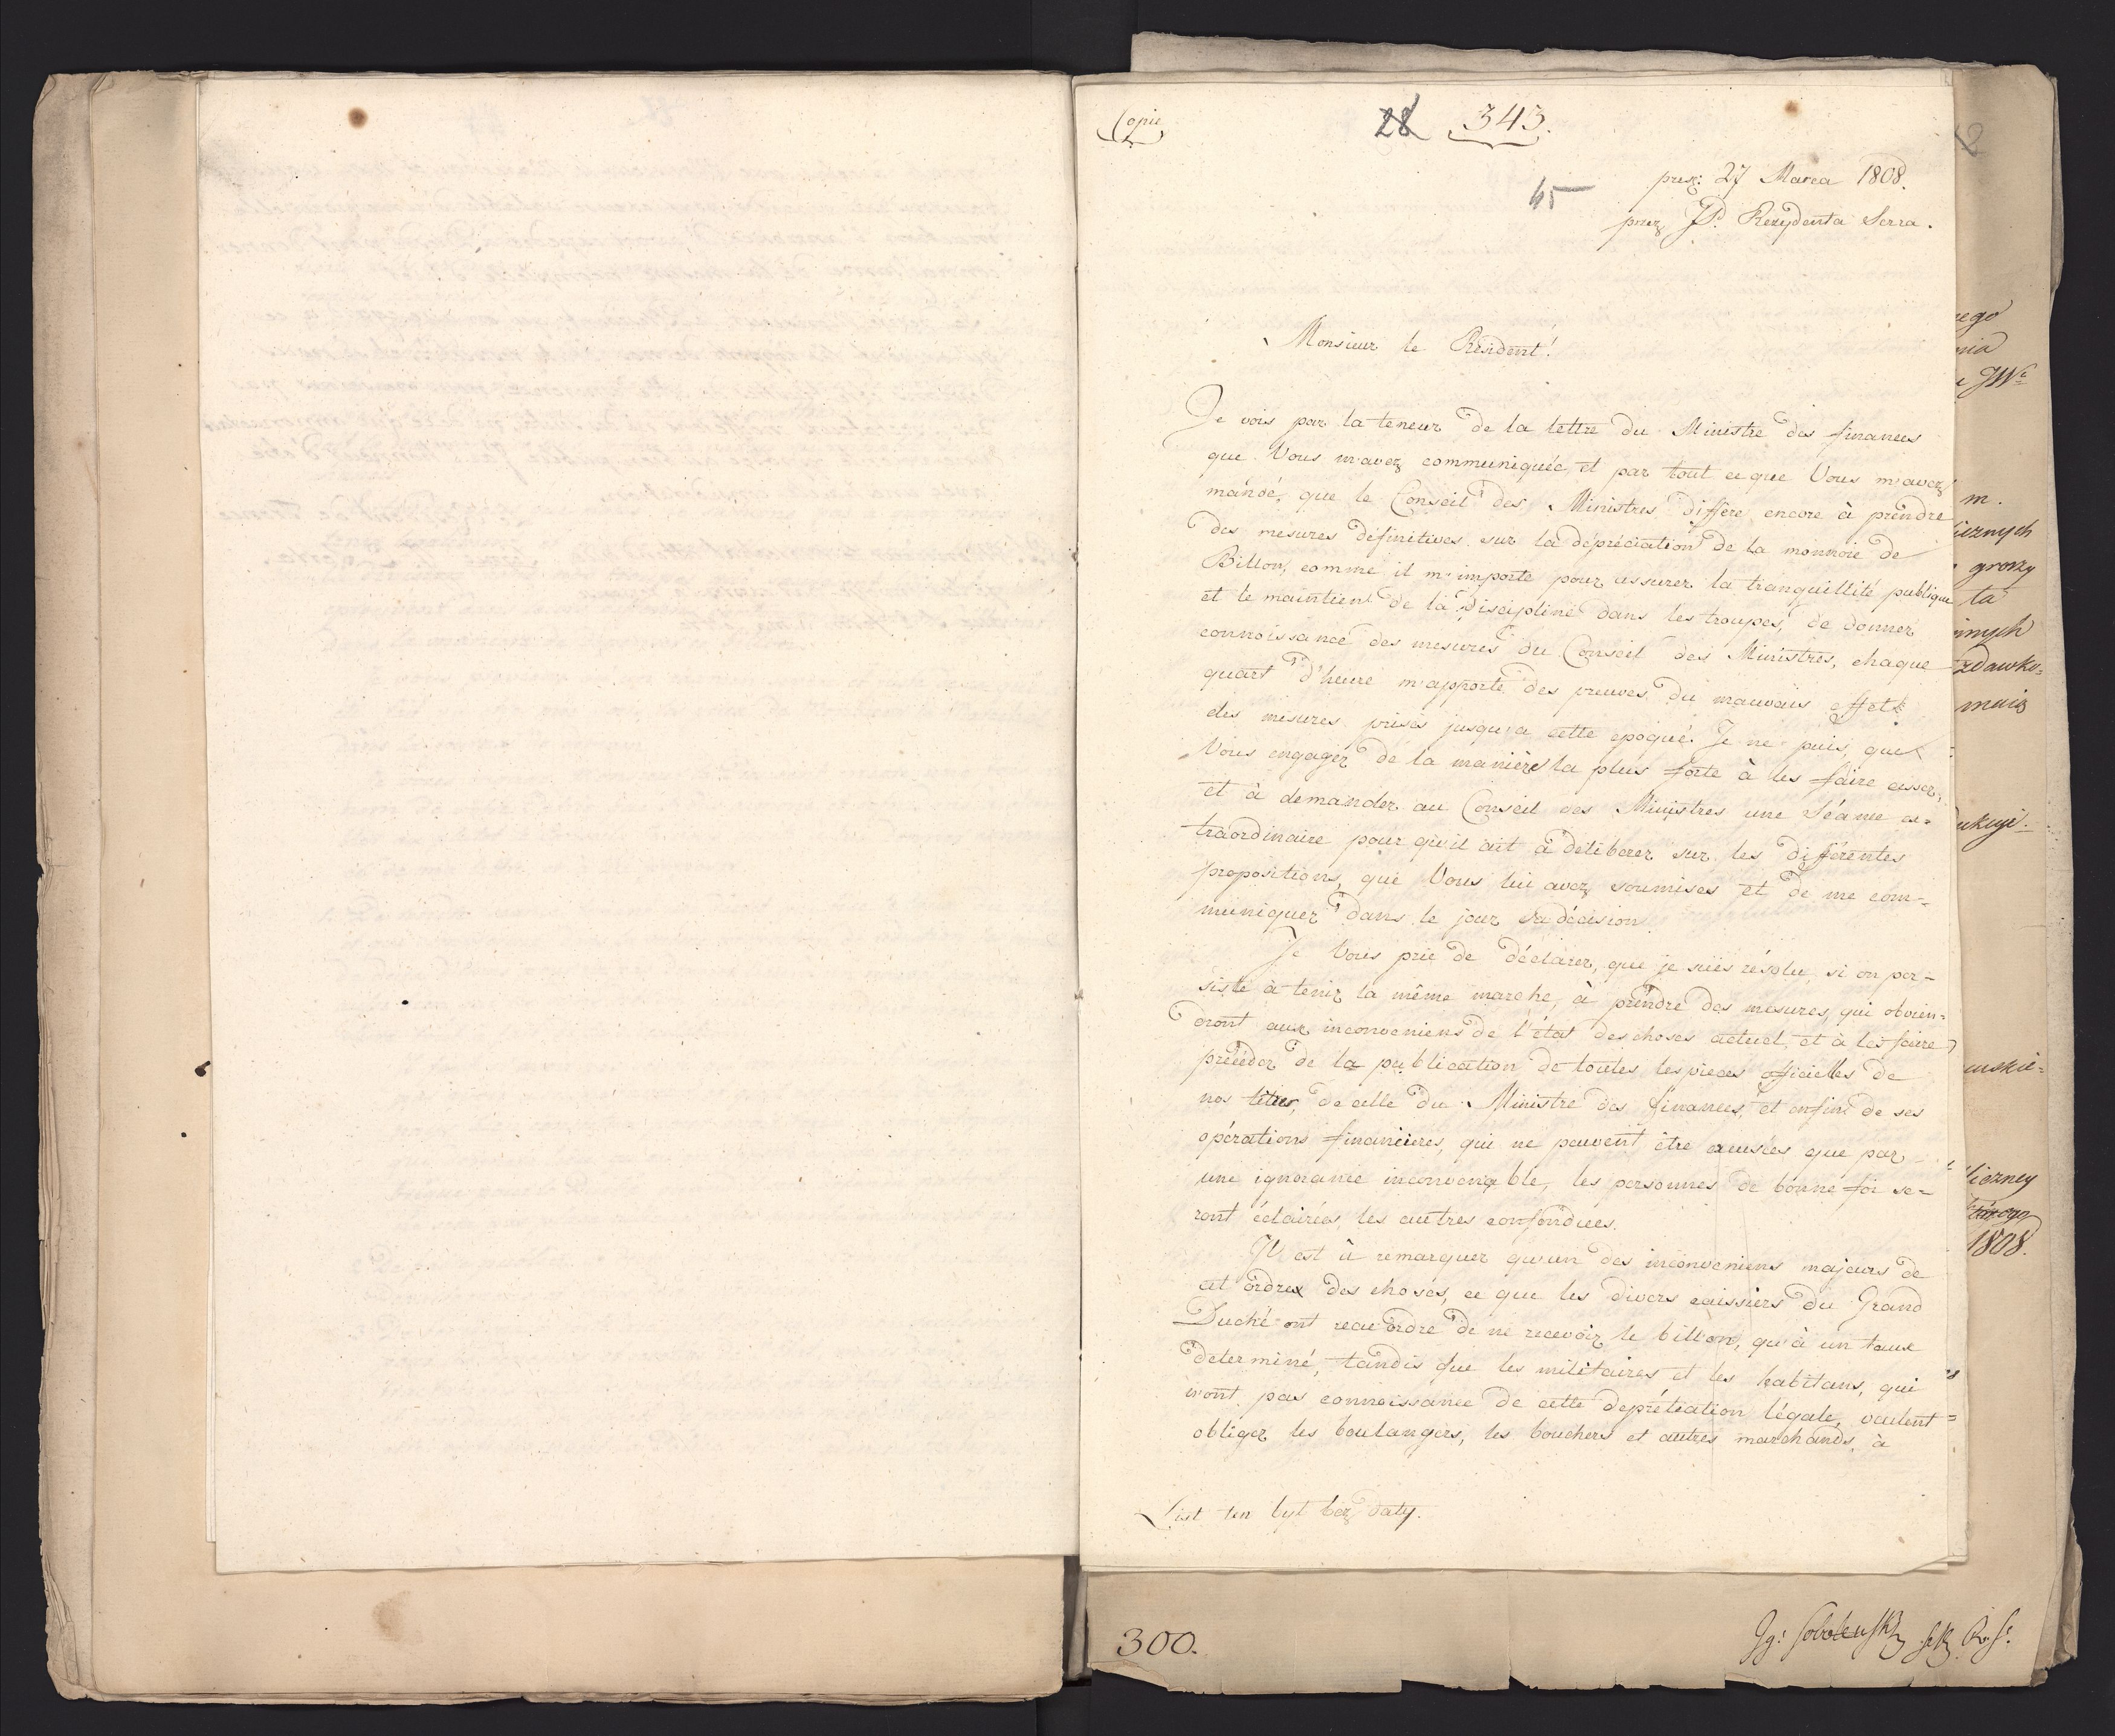 Copie
28 343.
45
prez: 27 Marca 1808.
przez JP. Rezydenta Serra.
Monsieur le Résident!
Je vois par la teneur de la lettre du Ministre des finances
que Vous m'avez communiquée, et par tout ce que Vous m'avez
mandé, que le Conseil des Ministres differe encore à prendre
des mesures définitives sur la dépréciation de la monnoie de
Billon, comme il m'importe pour assurer la tranquillité publique
et le maintient de la discipline dans les troupes, de donner
connoissance des mesures du Conseil des Ministres, chaque
quart d'heure m'apporte des preuves du mauvais effet
des mesures prises jusqu'a cette epoque. Je ne puis, que
Vous engager de la manière la plus forte à les faire cesser,
et à demander au Conseil des Ministres une Séance ex=
traordinaire pour qu'il ait à déliberer sur les différentes
propositions, que Vous lui avez soumises et de me com=
muniquer dans le jour sa décision.
Je Vous prie de déclarer, que je suis résolu, si on per=
siste à tenir la même marche, à prendre des mesures, qui obvien=
dront aux inconveniens de l'état des choses actuel, et à les faire
précéder de la publication de toutes les pieces officielles de
nos lettres, de celle du Ministre des finances, et enfin de ses
opérations financieres, qui ne peuvent être excusées que par
une ignorance inconvenable, les personnes de bonne foi se=
ront éclairées, les autres confondues.
Il est à remarquer qu'un des inconveniens majeurs de
cet ordre des choses, ce que les divers caissiers du Grand
Duché ont recu ordre de ne recevoir le billon, qu'à un taux
determiné, tandis que les militaires et les habitans, qui
n'ont pas connoissance de cette dépréciation légale, veulent
obliger les boulangers, les bouchers et autres marchands, à
List ten był bez daty.
300.
Jg: Sobolewski
ego
nia
JWe
m.
icznych
groszy
ta
innych
zdawko=
maig
ukcyi.
uskie=
liczney
1808.